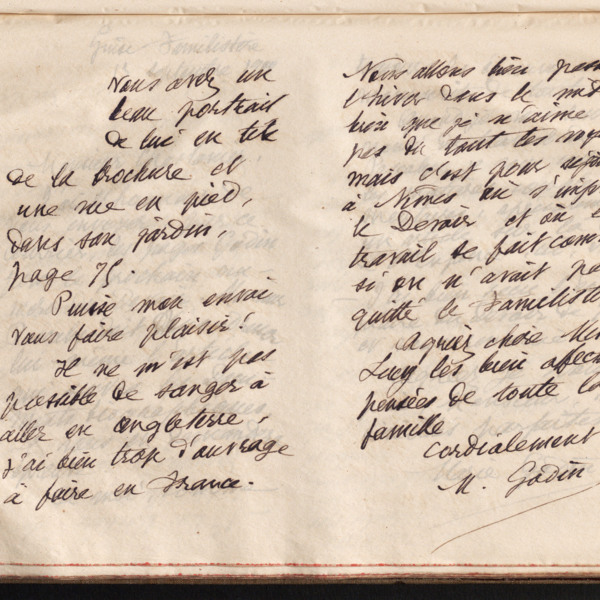 Vous avez un
beau portrait
de lui en tête
de la brochure et
une vue en pied,
dans son jardin,
page 75.
Puisse mon envoi
vous faire plaisir!
Il ne m'est pas
possible de songer à
aller en angleterre,
j'ai bien trop d'ouvrage
à faire en France.
Nous allons bien
l'hiver dans le
bien que je n'aime
pas du tout les
mais c'est pour
à Nîmes où
le Devoir et où
travail se fait
si on n'avait
quitté le
Agréez chère
Lucy les bien
pensées de toute la
famille
cordialement
M. Godin